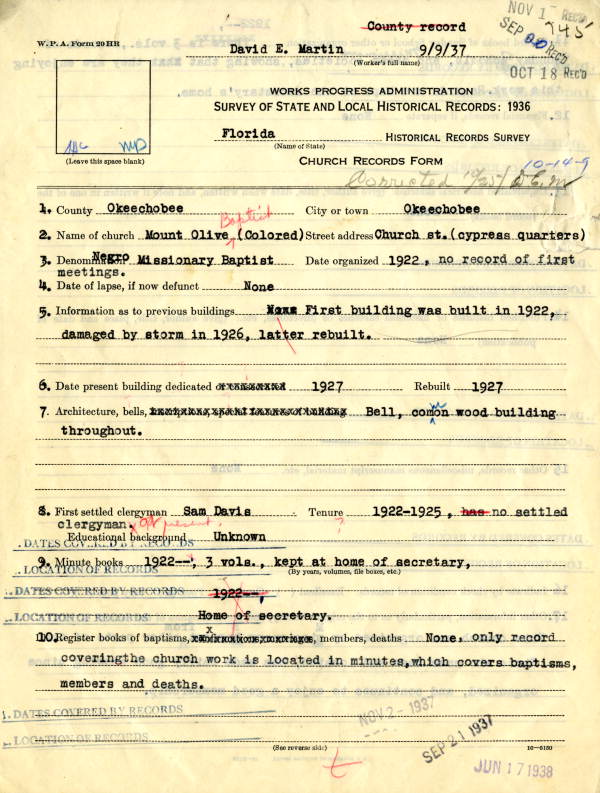 County record
NOV 1 REC'D
745
SEP 20 REC'D
OCT 18 REC'D
W. P. A. Form 20 HR
David E. Martin 9/9/37
(Worker's full name)
WORKS PROGRESS ADMINISTRATION
SURVEY OF STATE AND LOCAL HISTORICAL RECORDS: 1936
Florida HISTORICAL RECORDS SURVEY
(Name of State)
(Leave this space blank)
CHURCH RECORDS FORM
10-14-9
Corrected
1. County Okeechobee City or town Okeechobee
Baptist
2. Name of church Mount Olive (Colored) Street address Church st. (cypress quarters)
3. Denomination Negro Missionary Baptist Date organized 1922, no record of first
meetings.
4. Date of lapse, if now defunct None
5. Information as to previous buildings First building was built in 1922,
damaged by storm in 1926, latter rebuilt.
6. Date present building dedicated 1927 Rebuilt 1927
7. Architecture, bells, Bell, common wood building
throughout.
8. First settled clergyman Sam Davis Tenure 1922-1925, has no settled
clergyman. at present. ?
Educational background Unknown
DATES COVERED BY RECORDS
9. Minute books 1922--, 3 vols., kept at home of secretary,
LOCATION OF RECORDS
(By years, volumes, file boxes, etc.)
DATES COVERED BY RECORDS 1922--,
LOCATION OF RECORDS Home of secretary.
10. Register books of baptisms, members, deaths None, only record
coveringthe church work is located in minutes, which covers baptisms,
members and deaths.
DATES COVERED BY RECORDS
NOV 2 - 1937
LOCATION OF RECORDS
SEP 21 1937
(See reverse side)
JUN 17 1938